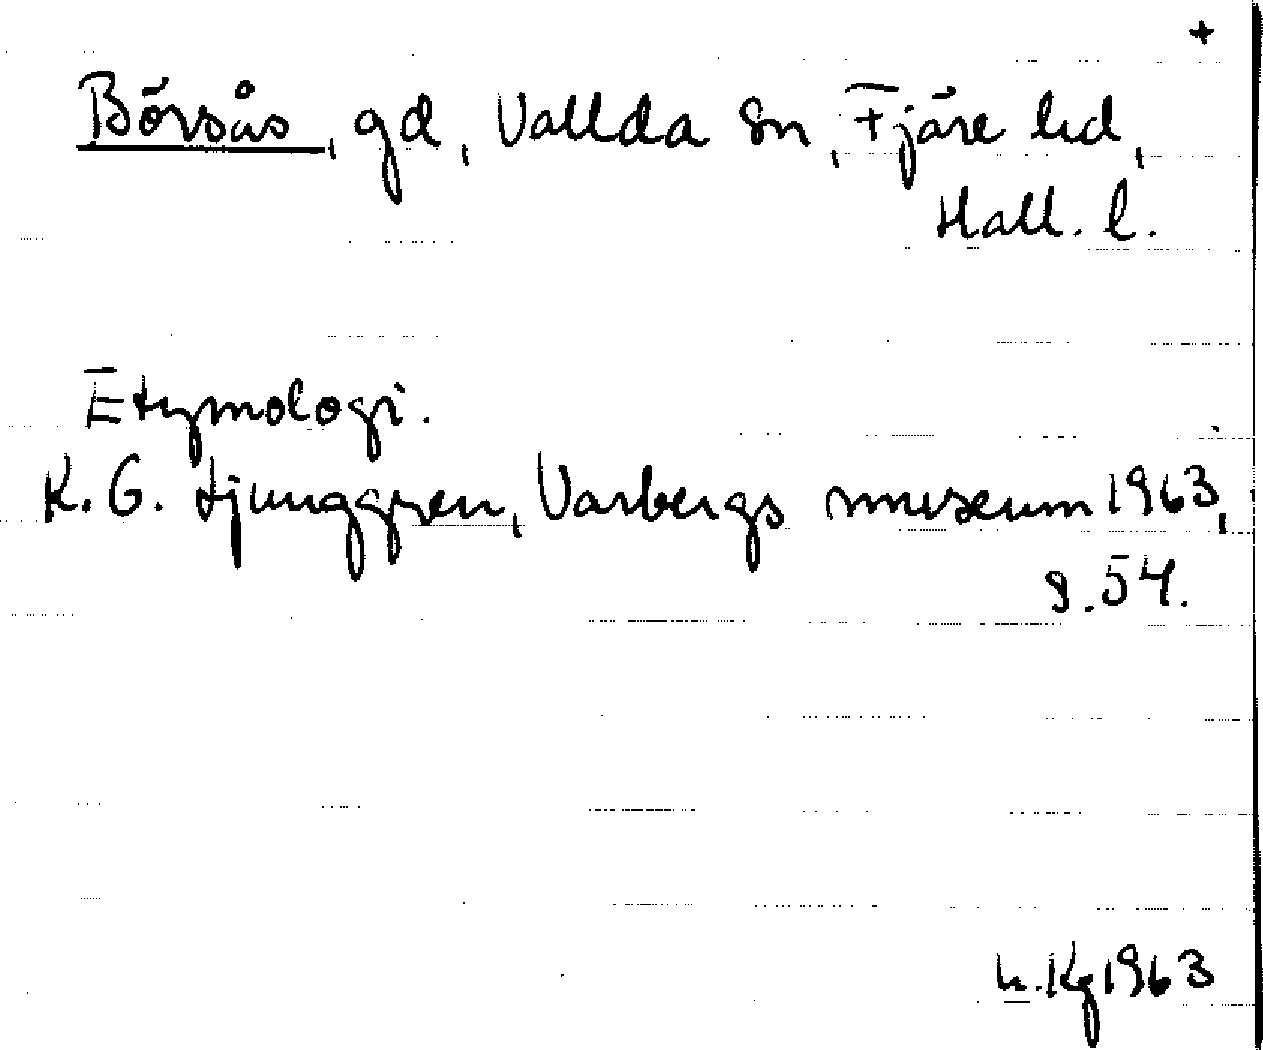 +
Börsås, gd, Vallda sn, Fjäre hd,
Hall. l.
Etymologi.
K. G. Ljunggren, Varbergs museum 1963,
s. 54.
h. Kg 1963